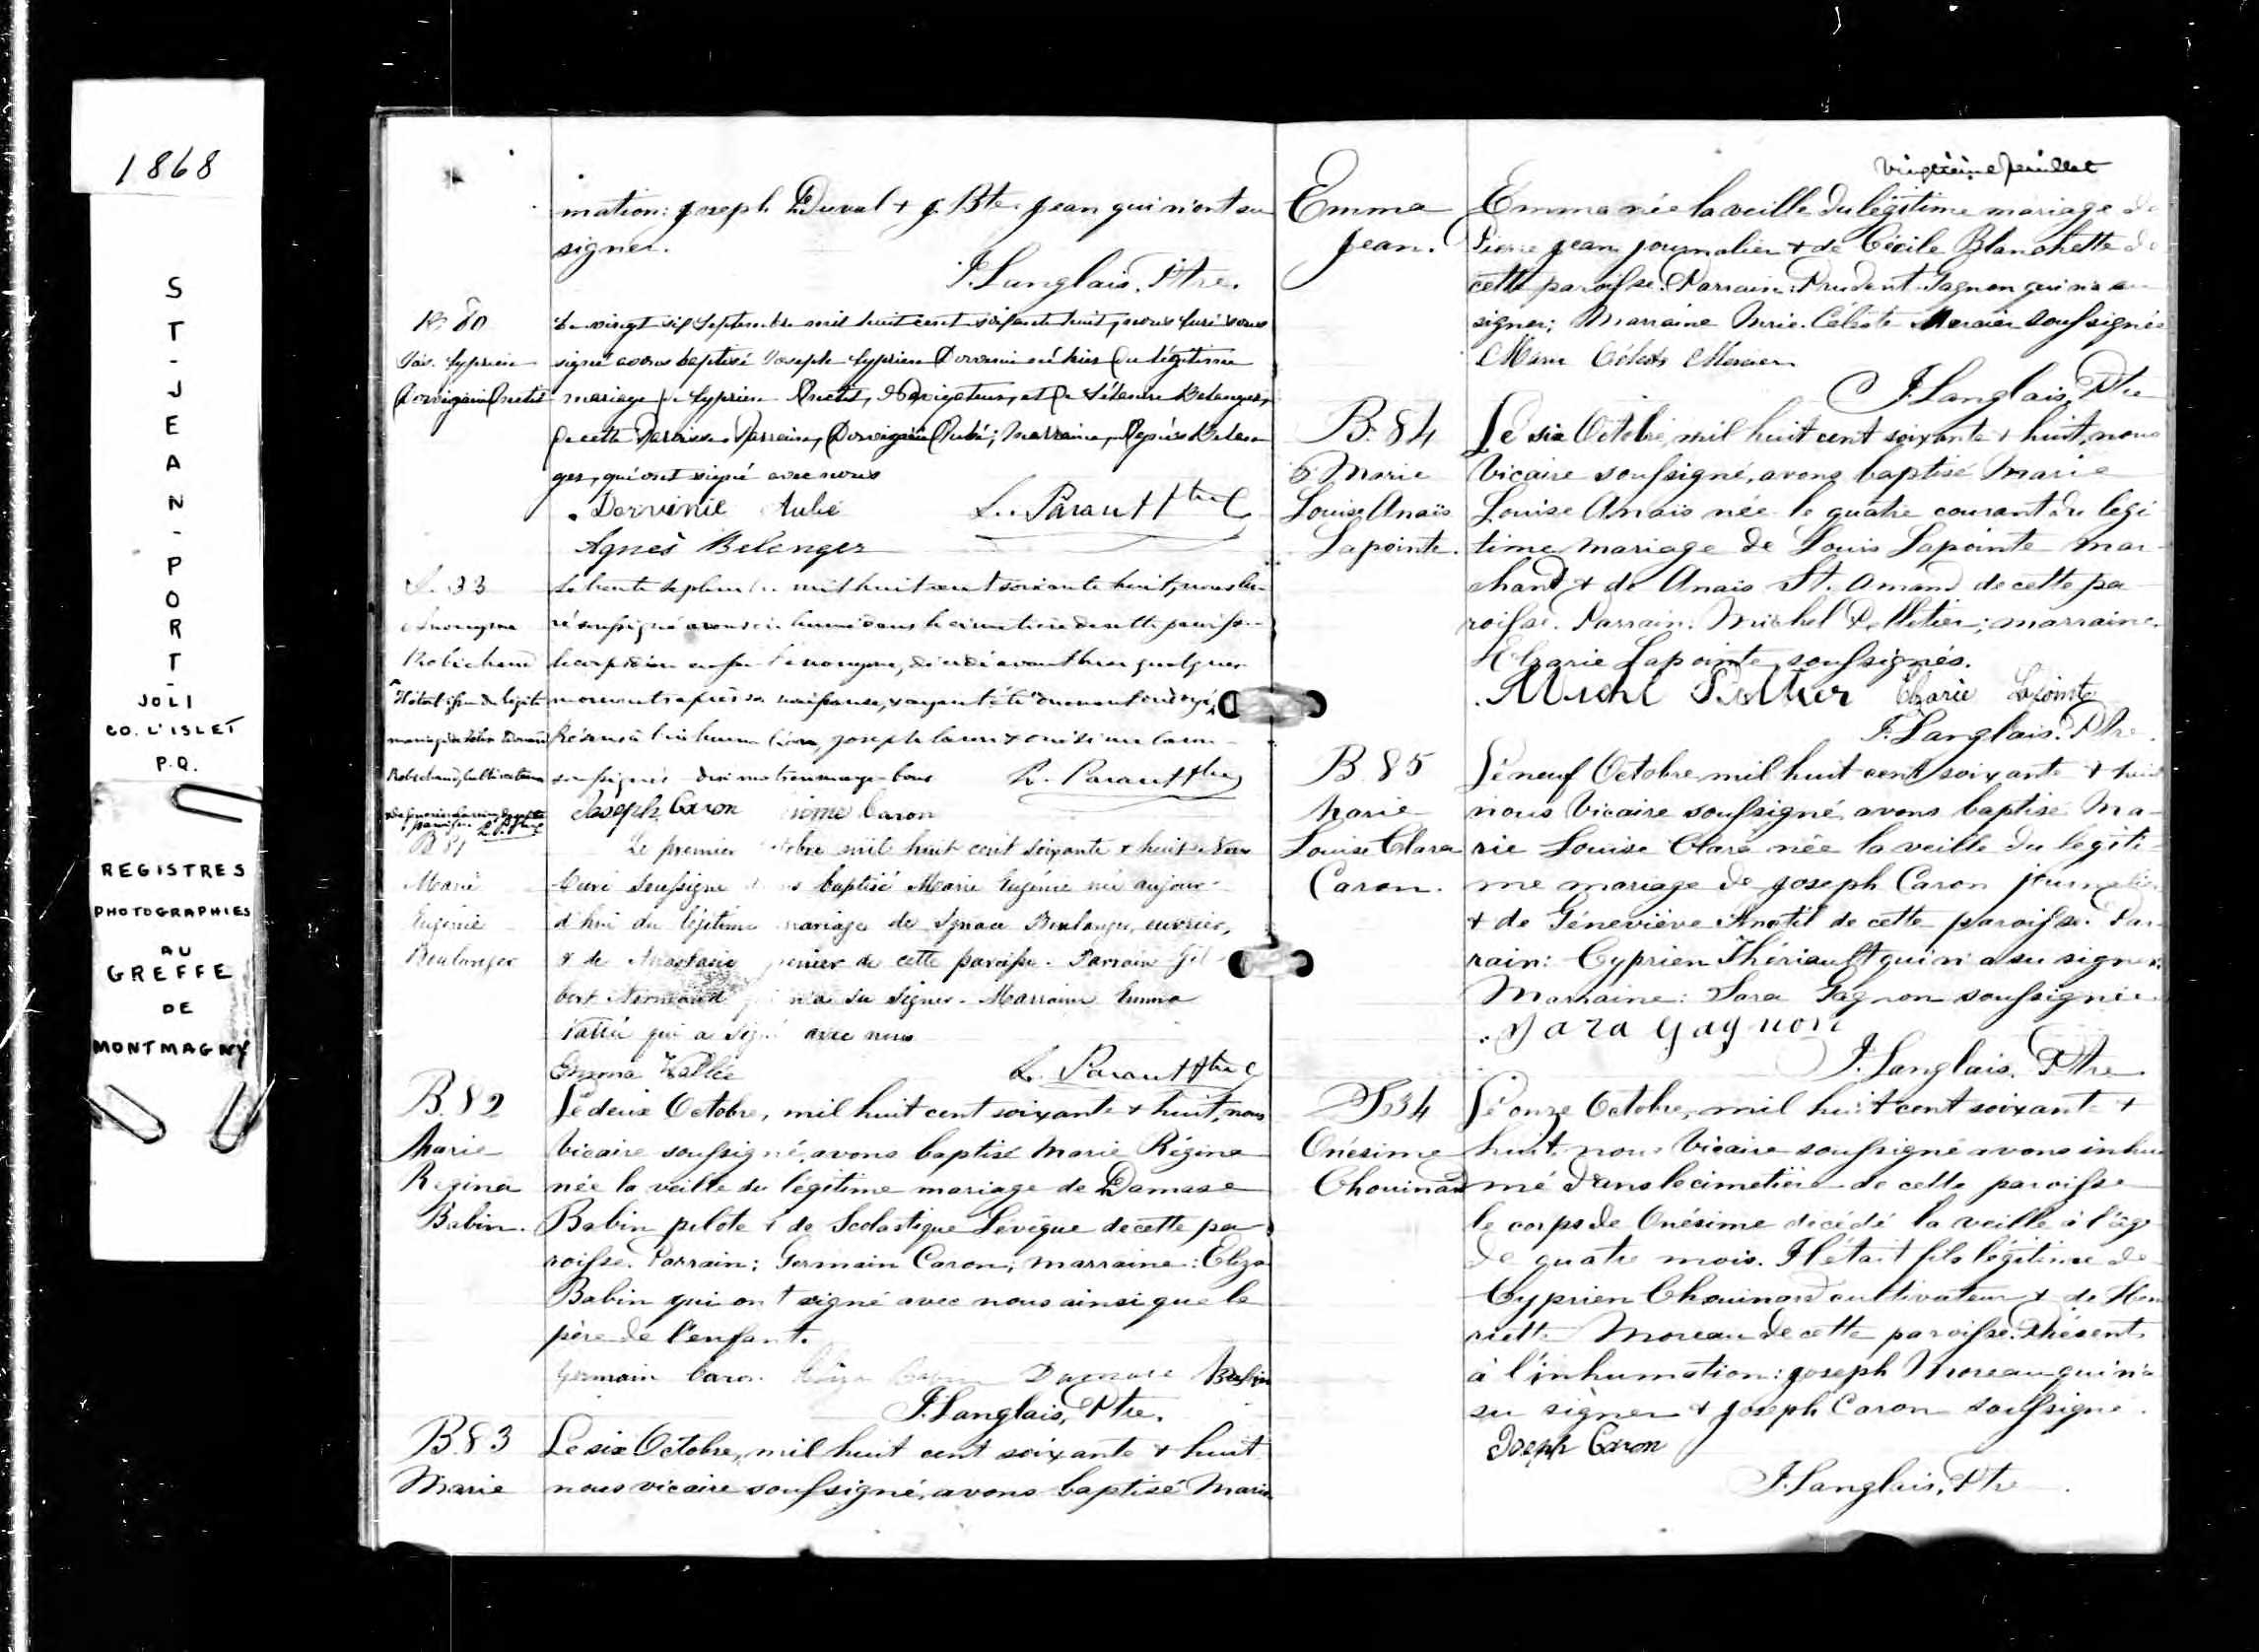 1868
ST-JEAN-PORT-
JOLI
CO. L'ISLET
P.Q.
REGISTRES
PHOTOGRAPHIES
AU
GREFFE
DE
MONTMAGNY
mation: Joseph Duval + J. Bte. Jean qui n'ont su
signer.
J. Langlais, Ptre.
B 80
Jos. Cyprien
signé avons baptisé Joseph Cyprien né hier du légitime
mariage de Cyprien Navigateur, et de Belanger,
de cette Paroisse. Parrain, Marraine, Agnès Belan
ger, qui ont signé avec nous
Aubé L. Parant Ptre C
Agnès Belanger
S. 33
Anonyme
Robichaud
Le trente septembre mil huit cent soixante huit, nous cu-
ré soussigné avons inhumé dans le cimetière de cette paroisse
le corps d'un enfant anonyme, décédé avant hier quelques
moments après sa naissance, & ayant été ondoyé,
Présents à l'inhumation, Joseph Caron & Onésime Caron
soussignés L. Parant Ptre
Joseph Caron Caron
B 81
Marie
Eugénie
Boulanger
Le premier octobre mil huit cent soixante & huit nous
Curé soussigné avons baptisé Marie Eugénie née aujour-
d'hui du légitime mariage de Ignace Boulanger, ouvrier,
& de Anastasie de cette paroisse. Parrain Gil-
bert Normand qui n'a su signer. Marraine Emma
Vallée qui a signé avec nous
Emma Vallée L. Parant Ptre C
B. 82
Marie
Regina
Babin.
Le deux Octobre, mil huit cent soixante & huit, nous
Vicaire soussigné, avons baptisé Marie Régina
née la veille du légitime mariage de Damase
Babin pilote & de Scolastique Levêque de cette pa-
roisse. Parrain: Germain Caron; marraine: Eliza
Babin qui ont signé avec nous ainsi que le
père de l'enfant.
Germain Caron Eliza Babin Damase Babin
J. Langlais, Ptre.
B. 83
Marie
Le six Octobre, mil huit cent soixante & huit
nous vicaire soussigné, avons baptisé Marie
vingtième feuillet
Emma
Jean.
Emma née la veille du légitime mariage de
Pierre Jean journalier & de Cécile Blanchette de
cette paroisse. Parrain: Prudent Gagnon qui n'a su
signer; Marraine Marie Céleste Mercier soussignée
Marie Céleste Mercier
J. Langlais, Ptre
B. 84
Marie
Louise Anaïs
Lapointe.
Le six Octobre, mil huit cent soixante & huit, nous
Vicaire soussigné, avons baptisé Marie
Louise Anaïs née le quatre courant du légi
time mariage de Louis Lapointe mar-
chand & de Anaïs St. Amand de cette pa
roisse. Parrain: Michel Pelletier; marraine
Elzarie Lapointe, soussignés.
Michel Peltier Elzarie Lapointe
J. Langlais. Ptre.
B 85
Marie
Louise Clara
Caron.
Le neuf Octobre mil huit cent soixante & huit
nous Vicaire soussigné avons baptisé Ma-
rie Louise Clara née la veille du légiti-
me mariage de Joseph Caron journalier
& de Géneviève Anctil de cette paroisse. Par-
rain: Cyprien Thériault qui n'a su signer;
Marraine: Sara Gagnon soussignée.
Sara Gagnon
J. Langlais. Ptre
S 34
Onésime
Chouinard
Le onze Octobre, mil huit cent soixante &
huit, nous Vicaire soussigné avons inhu
mé dans le cimetière de cette paroisse
le corps de Onésime décédé la veille à l'âge
de quatre mois. Il était fils légitime de
Cyprien Chouinard cultivateur & de Hen
riette Moreau de cette paroisse. Présents
à l'inhumation: Joseph Moreau qui n'a
su signer & Joseph Caron soussigné.
Joseph Caron
J. Langlais, Ptre